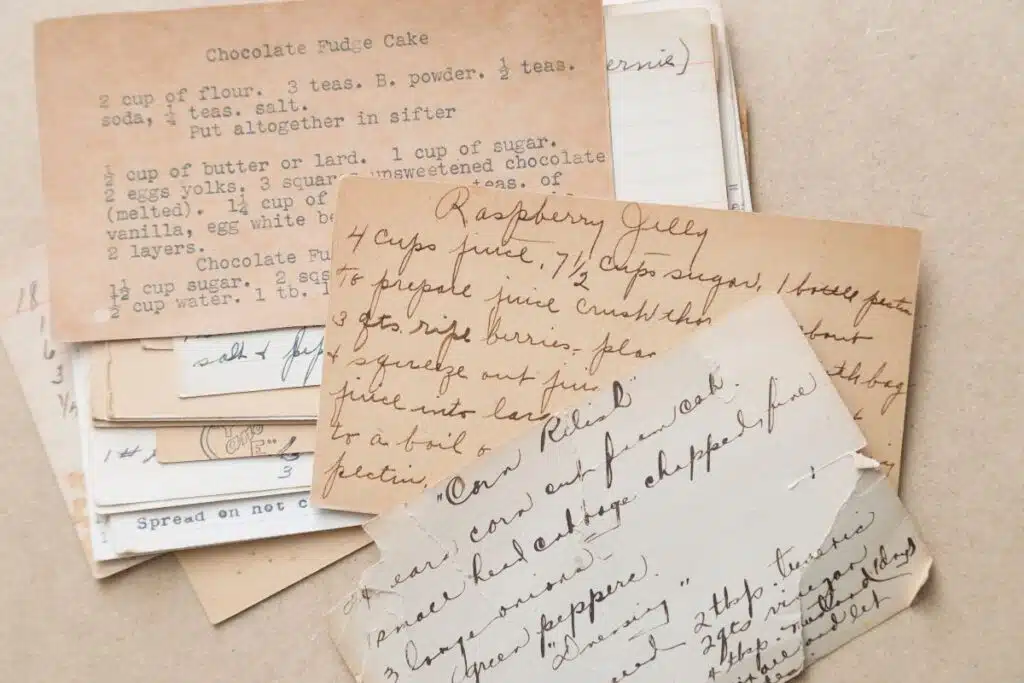 Chocolate Fudge Cake
2 cup of flour. 3 teas. B. powder. ½ teas.
soda, ¼ teas. salt.
Put altogether in sifter
½ cup of butter or lard. 1 cup of sugar.
2 eggs yolks. 3 squar unsweetened chocolate
(melted). 1¼ cup of teas. of
vanilla, egg white be
2 layers.
Chocolate Fu
1½ cup sugar. 2 sqs
½ cup water. 1 tb.
ernie)
Raspberry Jelly
4 cups juice, 7 1/2 cups sugar, 1 bottle pectin
To prepare juice crush thor about
3 qts. ripe berries. plac th bag
+ squeeze out jui
juice into larg
to a boil
pectin,
18
6
1/2
salt & pep
1 #
3
Spread on not c
"Corn Relish"
ears corn cut from cob.
1 small head cabbage chopped fine
3 large onions
green peppers.
"Dressing"
2 tbsp. tumeric
2 qts vinegar
4 tbsp. mustard
and let